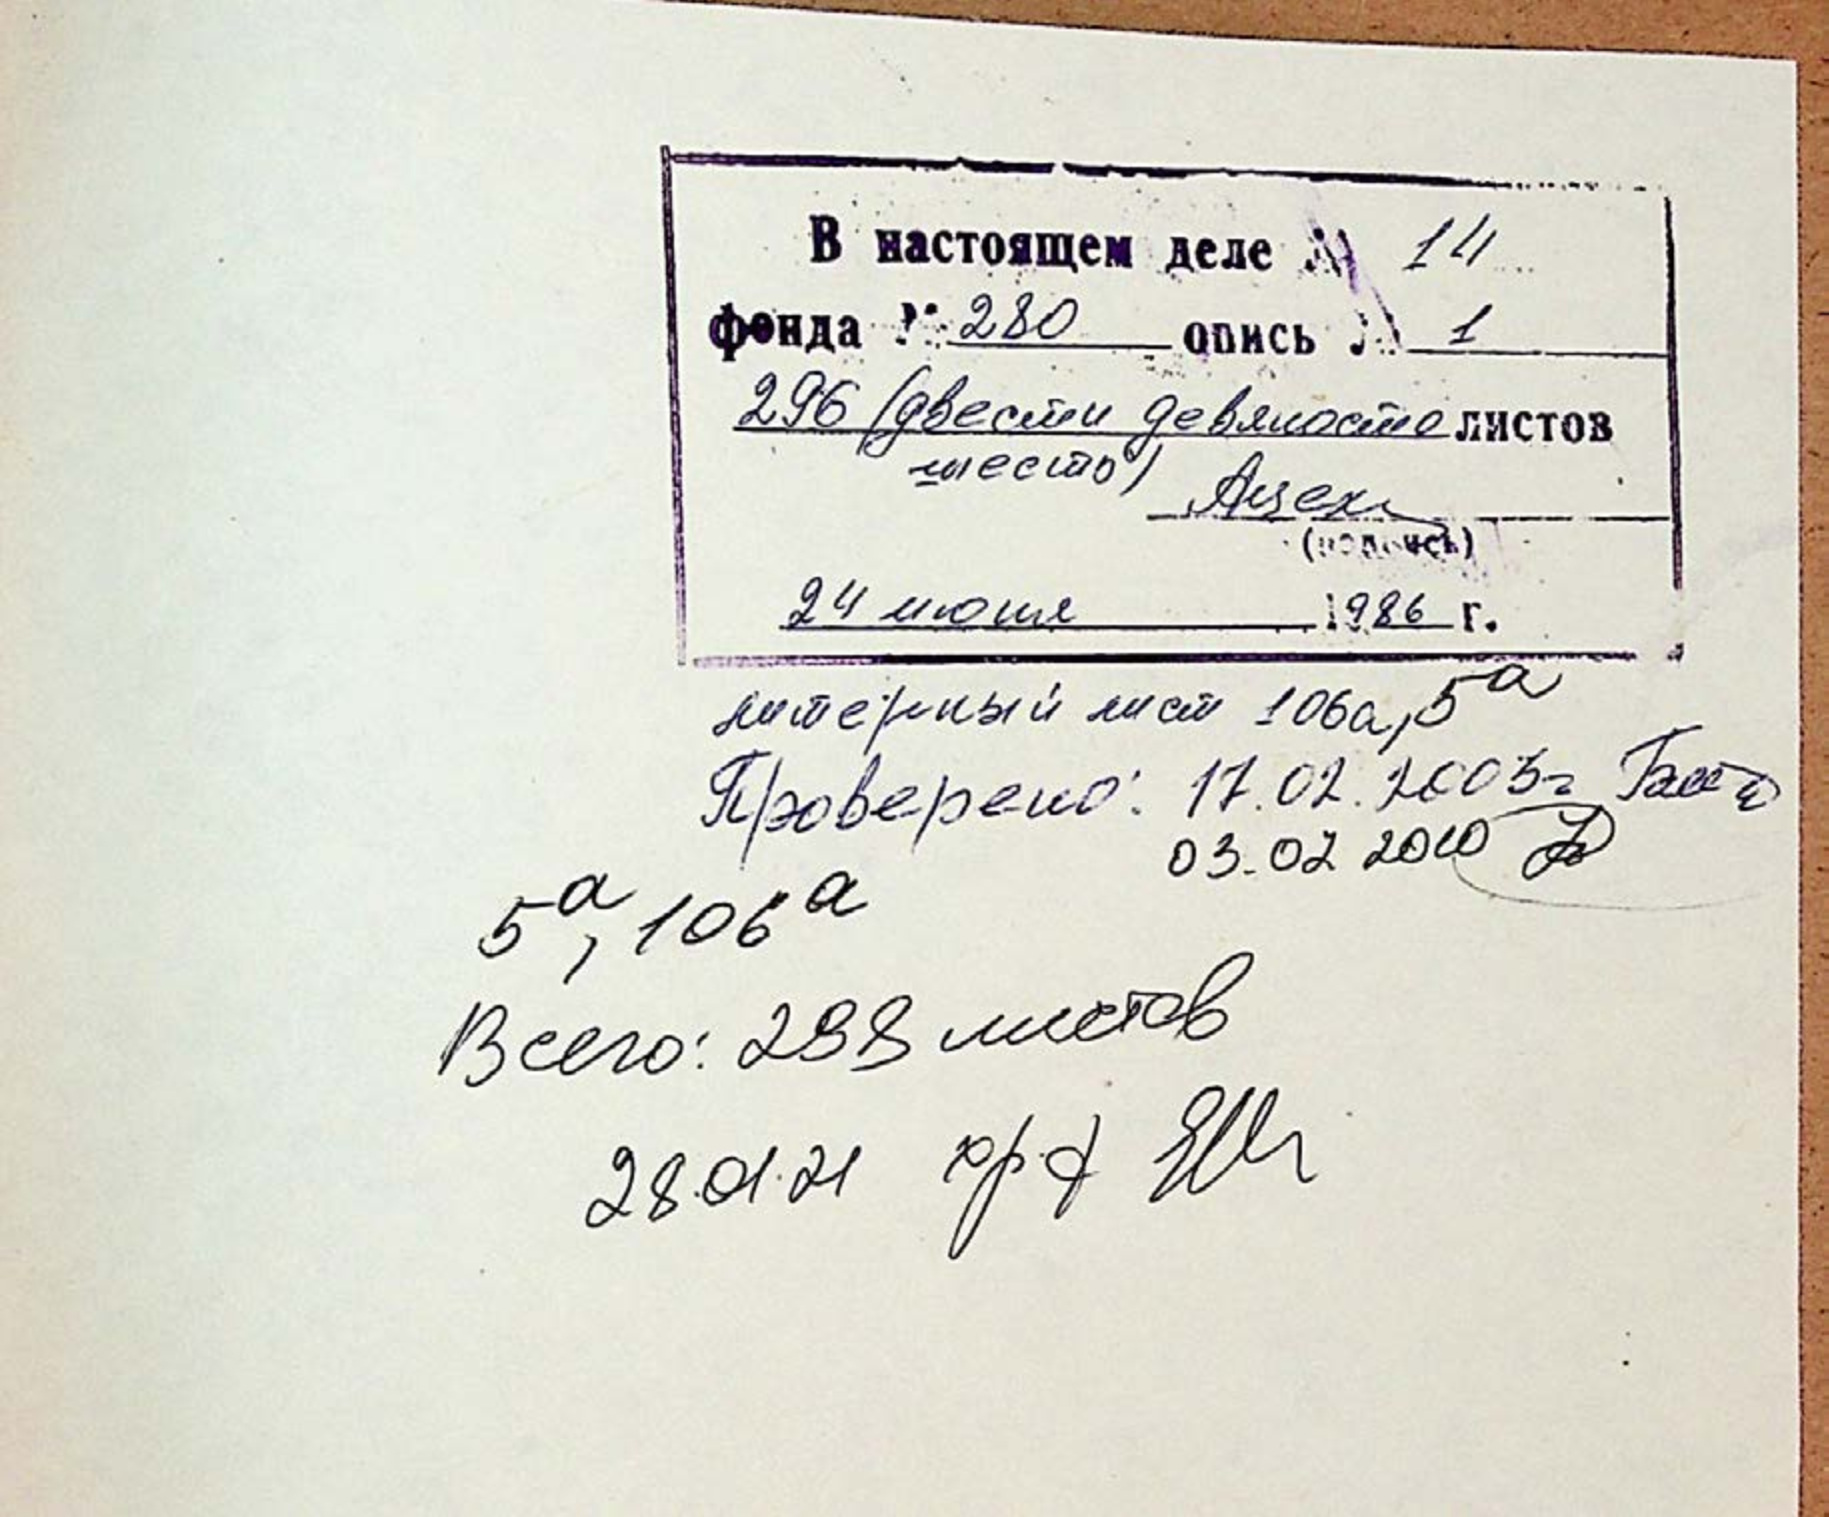 В настоящем деле № 14
фонда № 280 опись № 1
296 (двести девяносто листов
шесть)
(подпись)
24 июня 1986 г.
литерный лист 106а, 5а
Проверено: 17.02.2003г
03.02 2010
5а, 106а
Всего: 298 листов
28.01.21